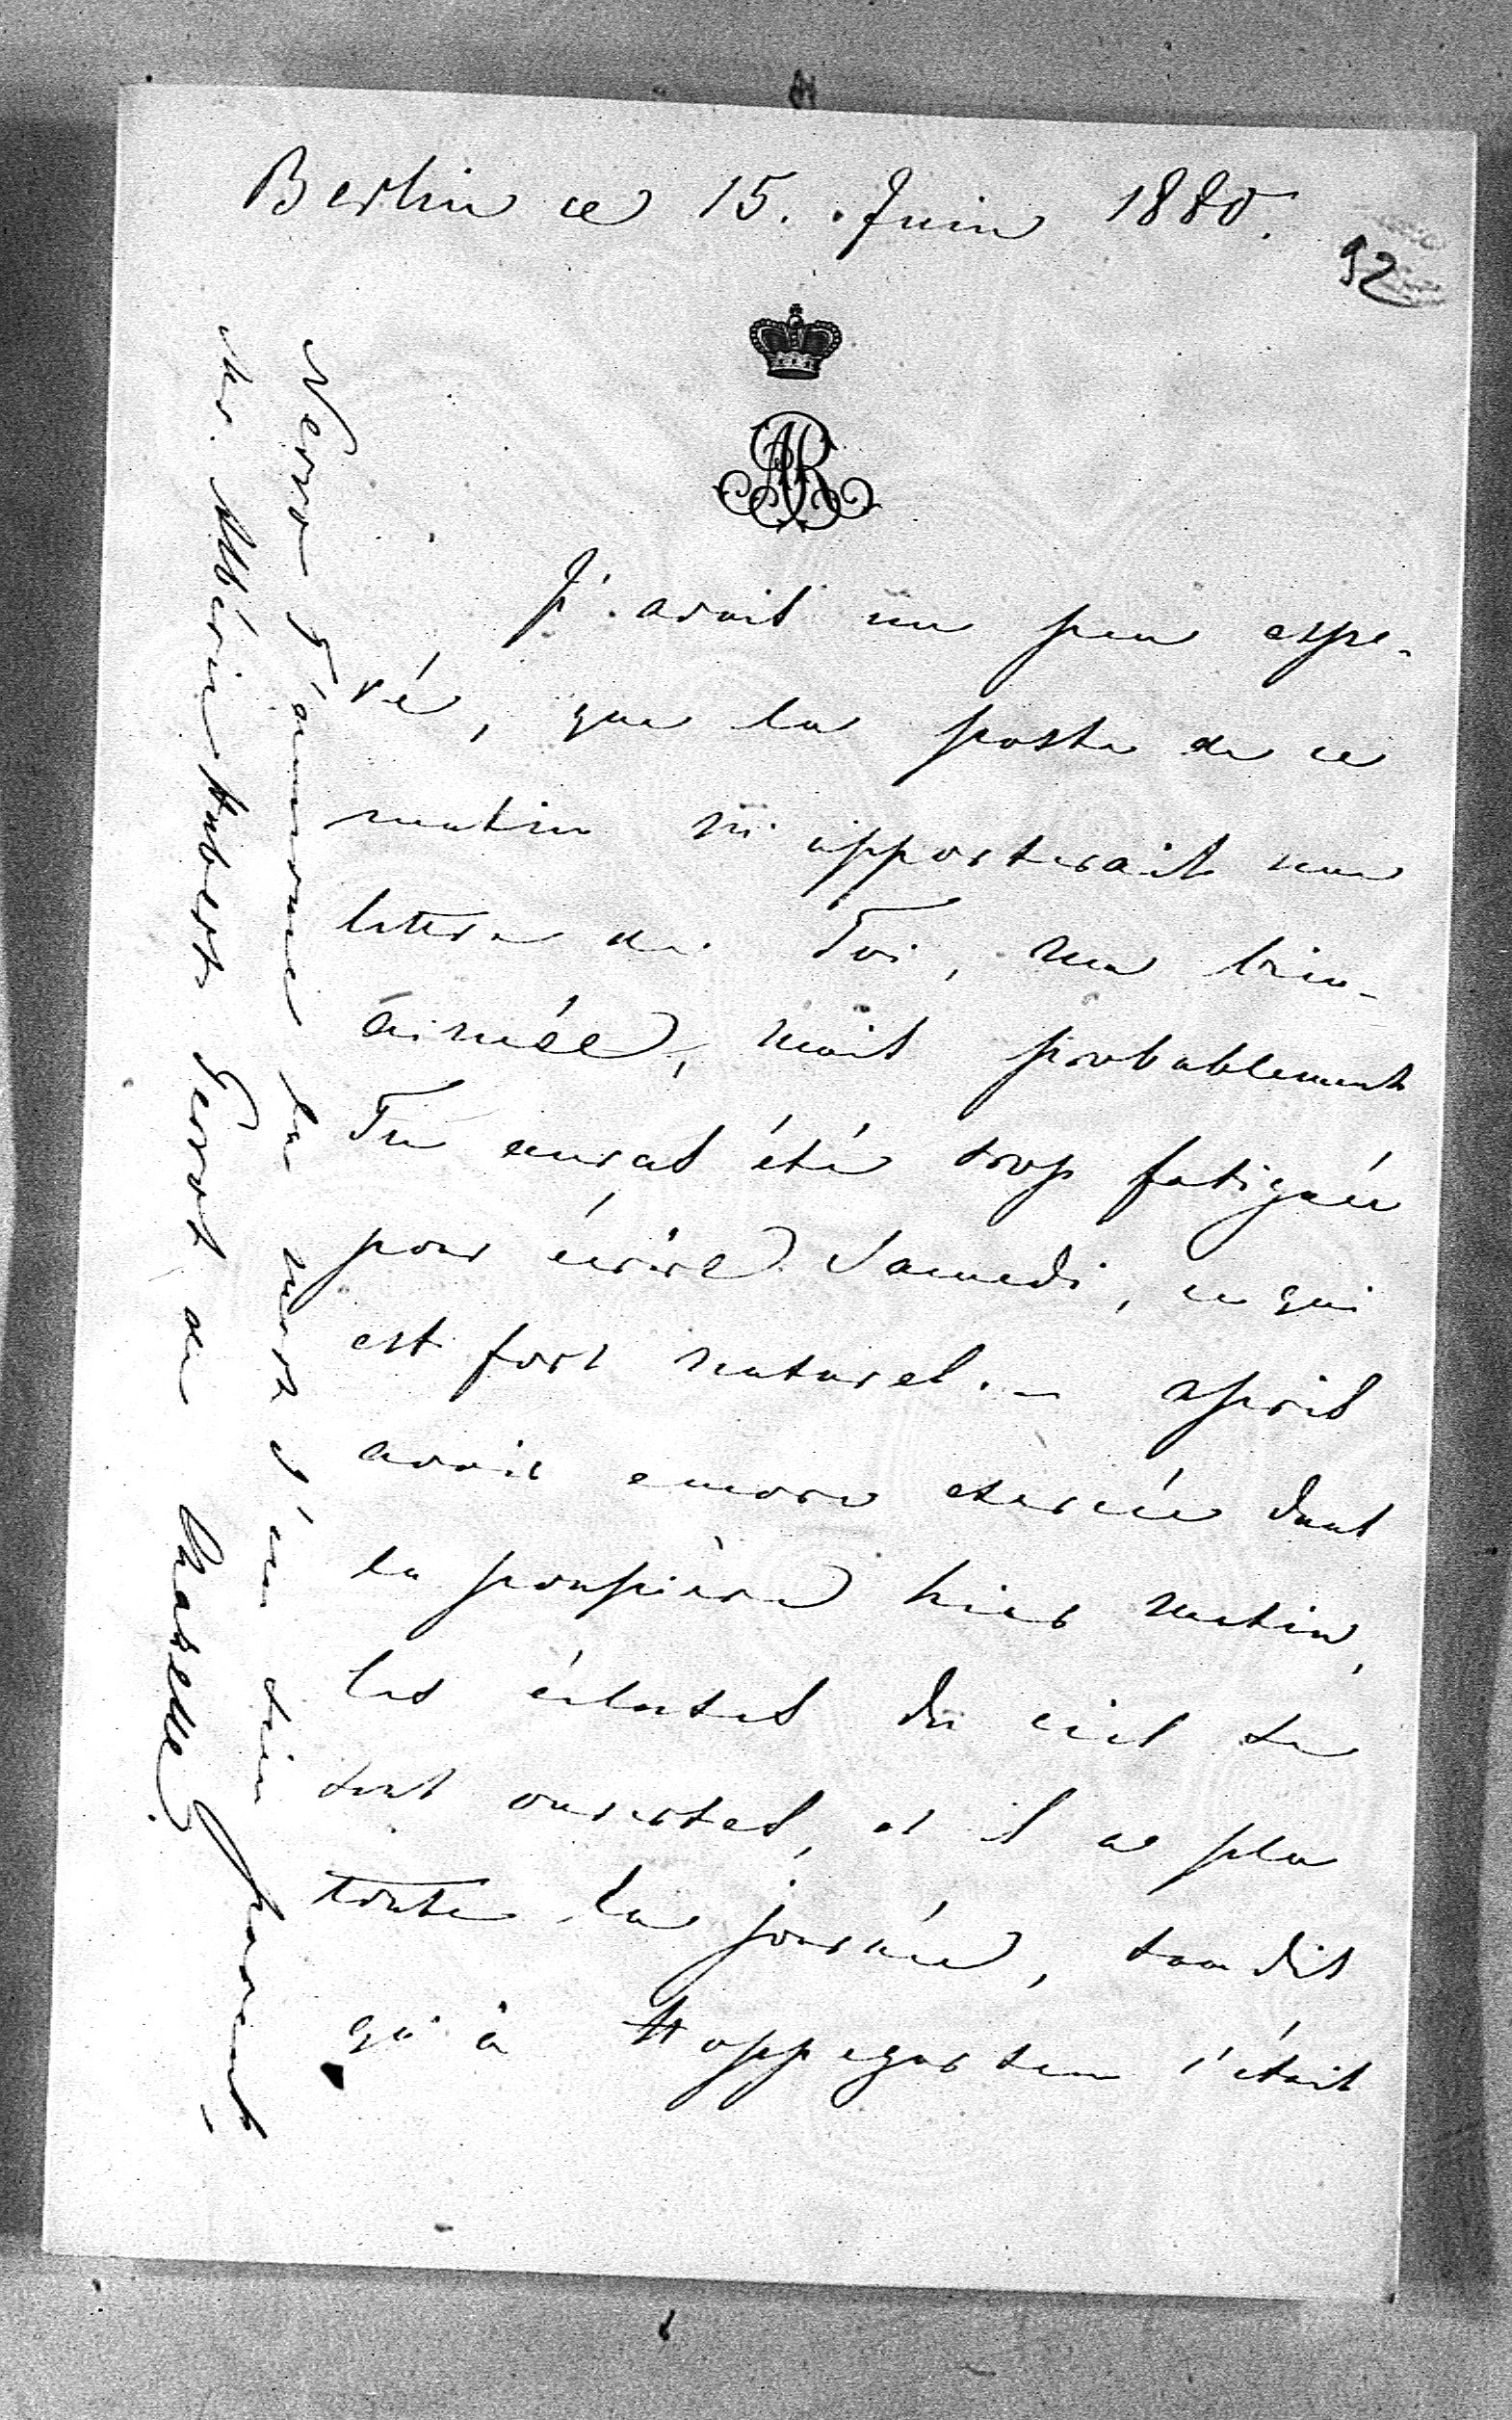 Berlin ce 15. Juin 1880.
92
AR
J'avais un peu espe-
ré, que la poste de ce
matin m'apporterait une
lettre de Toi, ma bien-
aimée, mais probablement
Tu auras été trop fatiguée
pour écrire Samedi, ce qui
est fort naturel. – après
avoir encore exercée dans
la poussière hier matin,
les écluses du ciel se
sont ouvertes, et il a plu
toute la journée, tandis
qu'à Hoppegarten c'était
Perro t'annonce la mort d'un sien parent,
Mr. Albéric Hubert Perrot de